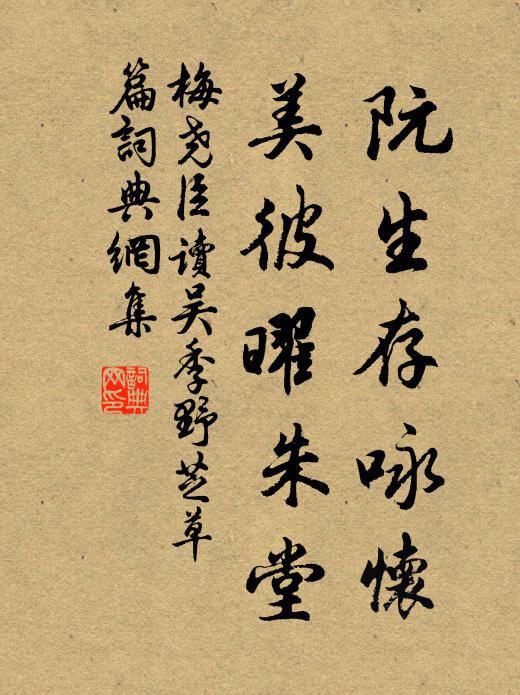 阮生存咏懷
美彼曜朱堂
梅尧臣读吴季野芝草
篇詞典網集
詞典网印